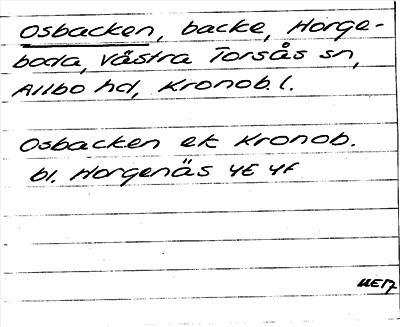 Osbacken, backe, Horge-
boda, Västra Torsås sn,
Allbo hd, Kronob.l.
Osbacken ek Kronob.
bl. Horgenäs 4E 4f